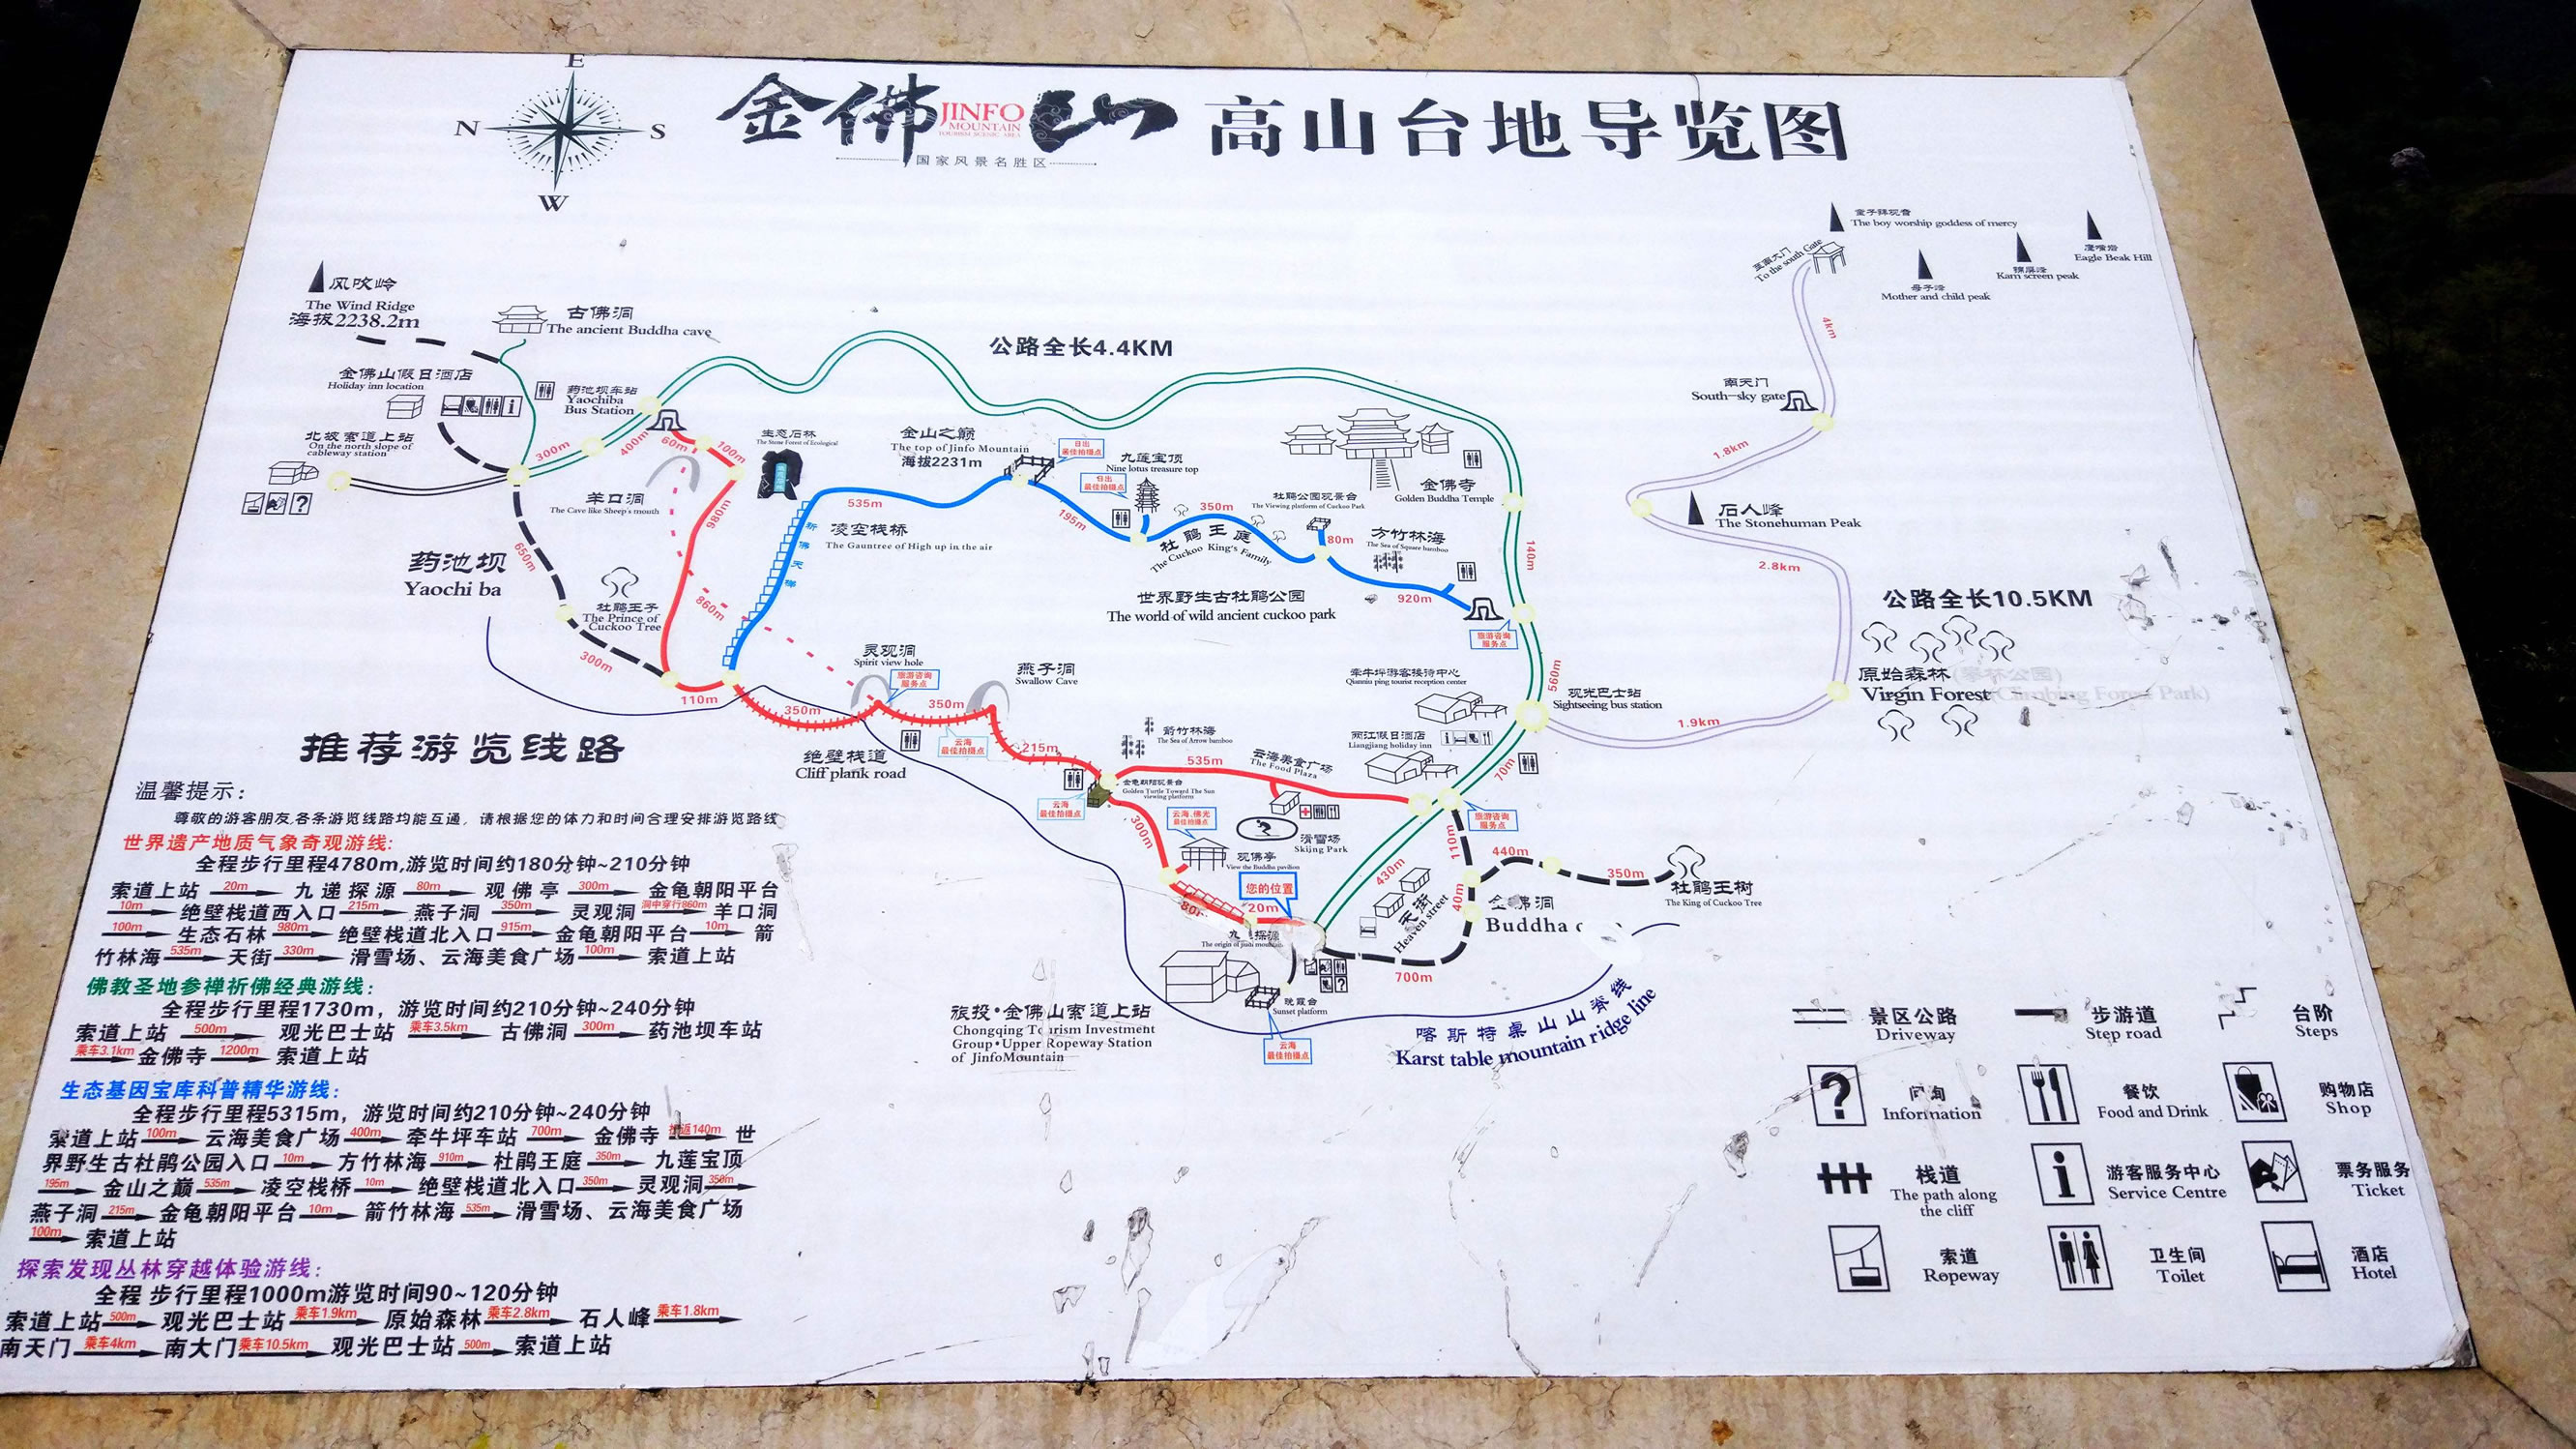 E
N
S
W
金佛山 高山台地导览图
JINFO
MOUNTAIN
TOURISM SCENIC AREA
国家风景名胜区
童子拜观音
The boy worship goddess of mercy
至南大门
To the south Gate
鹰嘴岩
Eagle Beak Hill
锦屏峰
Karn screen peak
母子峰
Mother and child peak
风吹岭
The Wind Ridge
海拔2238.2m
古佛洞
The ancient Buddha cave
公路全长4.4KM
4km
金佛山假日酒店
Holiday inn location
药池坝车站
Yaochiba
Bus Station
南天门
South-sky gate
北坡索道上站
On the north slope of
cableway station
300m
400m
60m
100m
生态石林
The Stone Forest of Ecological
金山之巅
The top of Jinfo Mountain
海拔2231m
日出
最佳拍摄点
九莲宝顶
Nine lotus treasure top
日出
最佳拍摄点
1.8km
羊口洞
The Cave like Sheep's mouth
980m
535m
195m
350m
杜鹃公园观景台
The Viewing platform of Cuckoo Park
金佛寺
Golden Buddha Temple
石人峰
The Stonehuman Peak
凌空栈桥
The Gauntree of High up in the air
祈佛天梯
杜鹃王庭
The Cuckoo King's Family
80m
方竹林海
The Sea of Square bamboo
140m
2.8km
药池坝
Yaochi ba
650m
杜鹃王子
The Prince of
Cuckoo Tree
860m
世界野生古杜鹃公园
The world of wild ancient cuckoo park
920m
旅游咨询
服务点
公路全长10.5KM
300m
110m
灵观洞
Spirit view hole
旅游咨询
服务点
燕子洞
Swallow Cave
牵牛坪游客接待中心
Qianniu ping tourist reception center
560m
观光巴士站
Sightseeing bus station
原始森林(攀林公园)
Virgin Forest(Climbing Forest Park)
1.9km
350m
350m
215m
云海
最佳拍摄点
绝壁栈道
Cliff plank road
箭竹林海
The Sea of Arrow bamboo
535m
云海美食广场
The Food Plaza
两江假日酒店
Liangjiang holiday inn
70m
金龟朝阳观景台
Golden Turtle Toward The Sun
viewing platform
云海
最佳拍摄点
300m
云海、佛光
最佳拍摄点
滑雪场
Skijng Park
旅游咨询
服务点
观佛亭
View the Buddha pavilion
您的位置
20m
430m
110m
440m
350m
杜鹃王树
The King of Cuckoo Tree
天街
Heaven street
40m
佛洞
Buddha
700m
晚霞台
Sunset platform
云海
最佳拍摄点
旅投•金佛山索道上站
Chongqing Tourism Investment
Group•Upper Ropeway Station
of JinfoMountain
喀斯特桌山山脊线
Karst table mountain ridge line
推荐游览线路
温馨提示:
尊敬的游客朋友,各条游览线路均能互通, 请根据您的体力和时间合理安排游览路线
世界遗产地质气象奇观游线:
全程步行里程4780m,游览时间约180分钟~210分钟
索道上站 20m 九递探源 80m 观佛亭 300m 金龟朝阳平台
10m 绝壁栈道西入口 215m 燕子洞 350m 灵观洞 洞中穿行860m 羊口洞
100m 生态石林 980m 绝壁栈道北入口 915m 金龟朝阳平台 10m 箭
竹林海 535m 天街 330m 滑雪场、云海美食广场 100m 索道上站
佛教圣地参禅祈佛经典游线:
全程步行里程1730m, 游览时间约210分钟~240分钟
索道上站 500m 观光巴士站 乘车3.5km 古佛洞 300m 药池坝车站
乘车3.1km 金佛寺 1200m 索道上站
生态基因宝库科普精华游线:
全程步行里程5315m, 游览时间约210分钟~240分钟
索道上站 100m 云海美食广场 400m 牵牛坪车站 700m 金佛寺 返140m 世
界野生古杜鹃公园入口 10m 方竹林海 910m 杜鹃王庭 350m 九莲宝顶
195m 金山之巅 535m 凌空栈桥 10m 绝壁栈道北入口 350m 灵观洞 350m
燕子洞 215m 金龟朝阳平台 10m 箭竹林海 535m 滑雪场、云海美食广场
100m 索道上站
探索发现丛林穿越体验游线:
全程 步行里程1000m游览时间90~120分钟
索道上站 500m 观光巴士站 乘车1.9km 原始森林 乘车2.8km 石人峰 乘车1.8km
南天门 乘车4km 南大门 乘车10.5km 观光巴士站 500m 索道上站
景区公路
Driveway
步游道
Step road
台阶
Steps
问询
Information
餐饮
Food and Drink
购物店
Shop
栈道
The path along
the cliff
游客服务中心
Service Centre
票务服务
Ticket
索道
Ropeway
卫生间
Toilet
酒店
Hotel